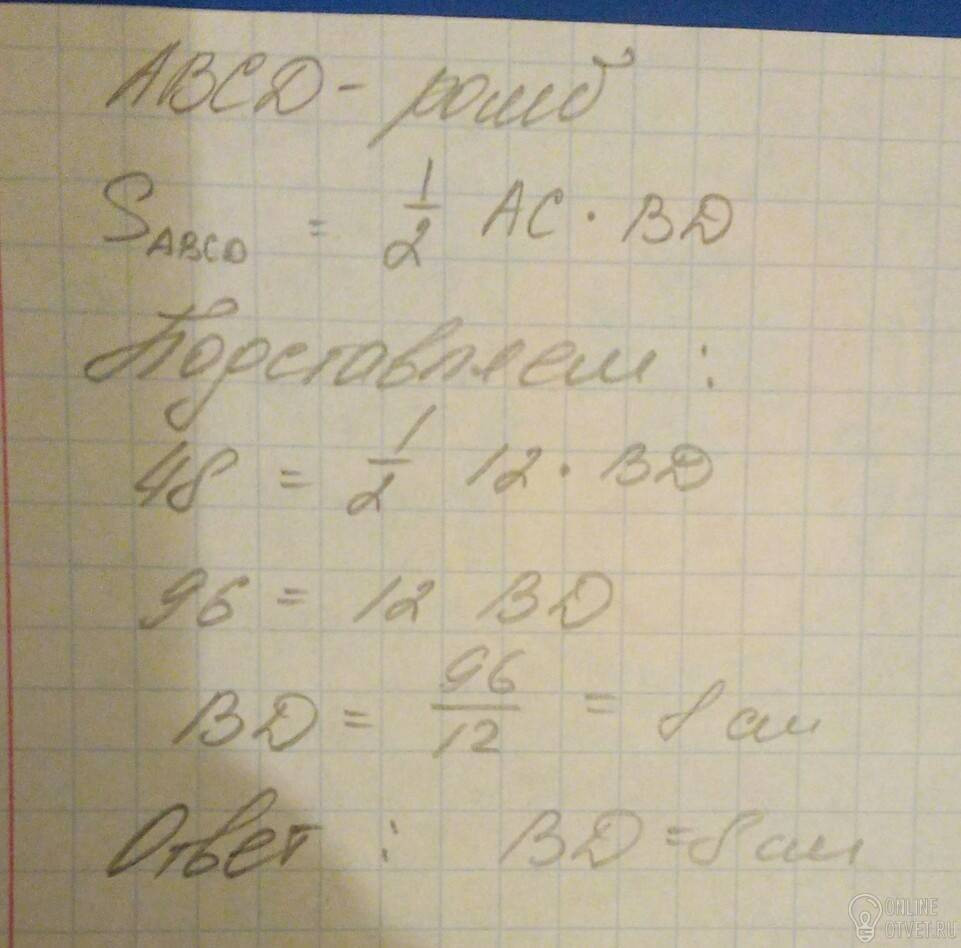 ABCD - ромб
S ABCD = 1/2 AC · BD
Подставляем :
48 = 1/2 12 · BD
96 = 12 BD
BD = 96/12 = 8 см
Ответ : BD = 8 см
ONLINE
OTVET.RU